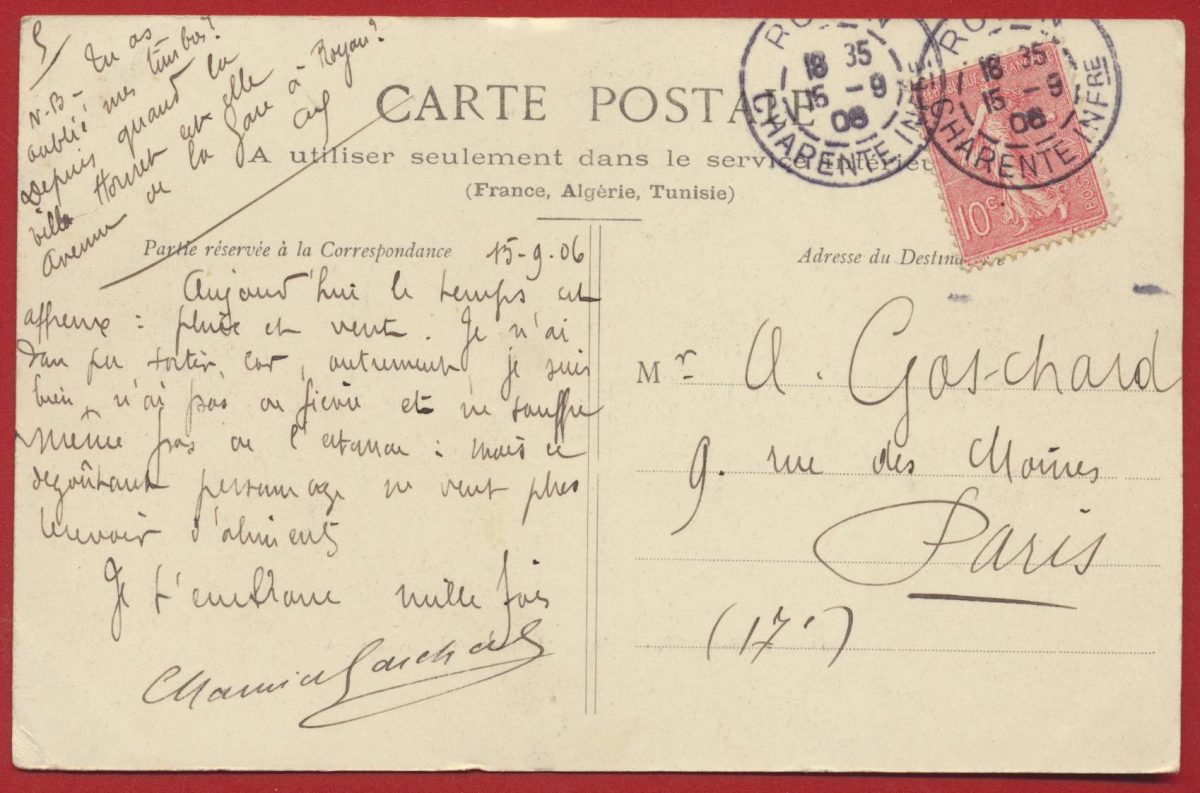 N.B - Tu as
oublié mes timbres?
Depuis quand la
villa Houret est elle
Avenue de la gare à Royan?
CARTE POSTALE
A utiliser seulement dans le service intérieur
(France, Algérie, Tunisie)
RO
18 35
15 - 9
06
CHARENTE INFRE
RO
18 35
15 - 9
06
CHARENTE INFRE
10c
POST
Partie réservée à la Correspondance
15-9-06
Aujourd'hui le temps est
affreux : pluie et vent. Je n'ai
pu sortir, car, autrement, je suis
bien, n'ai pas de fièvre et ne souffre
même pas de l'estomac : mais ce
dégoûtant personnage ne veut plus
recevoir d'aliments
Je t'embrasse mille fois
Adresse du Destinataire
Mr A. Gaschard
9. rue des Moines
Paris
(17e)